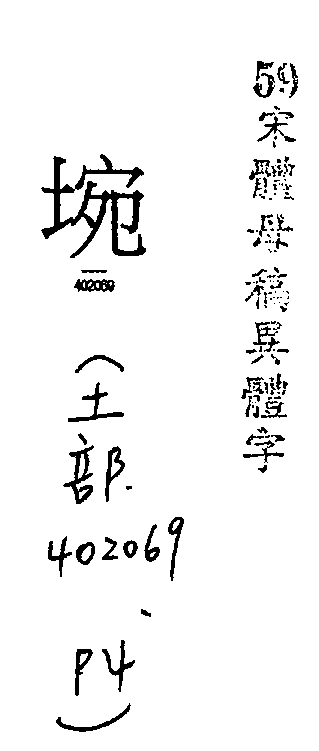 59宋體母稿異體字
埦
402069
(土部.402069、P4)